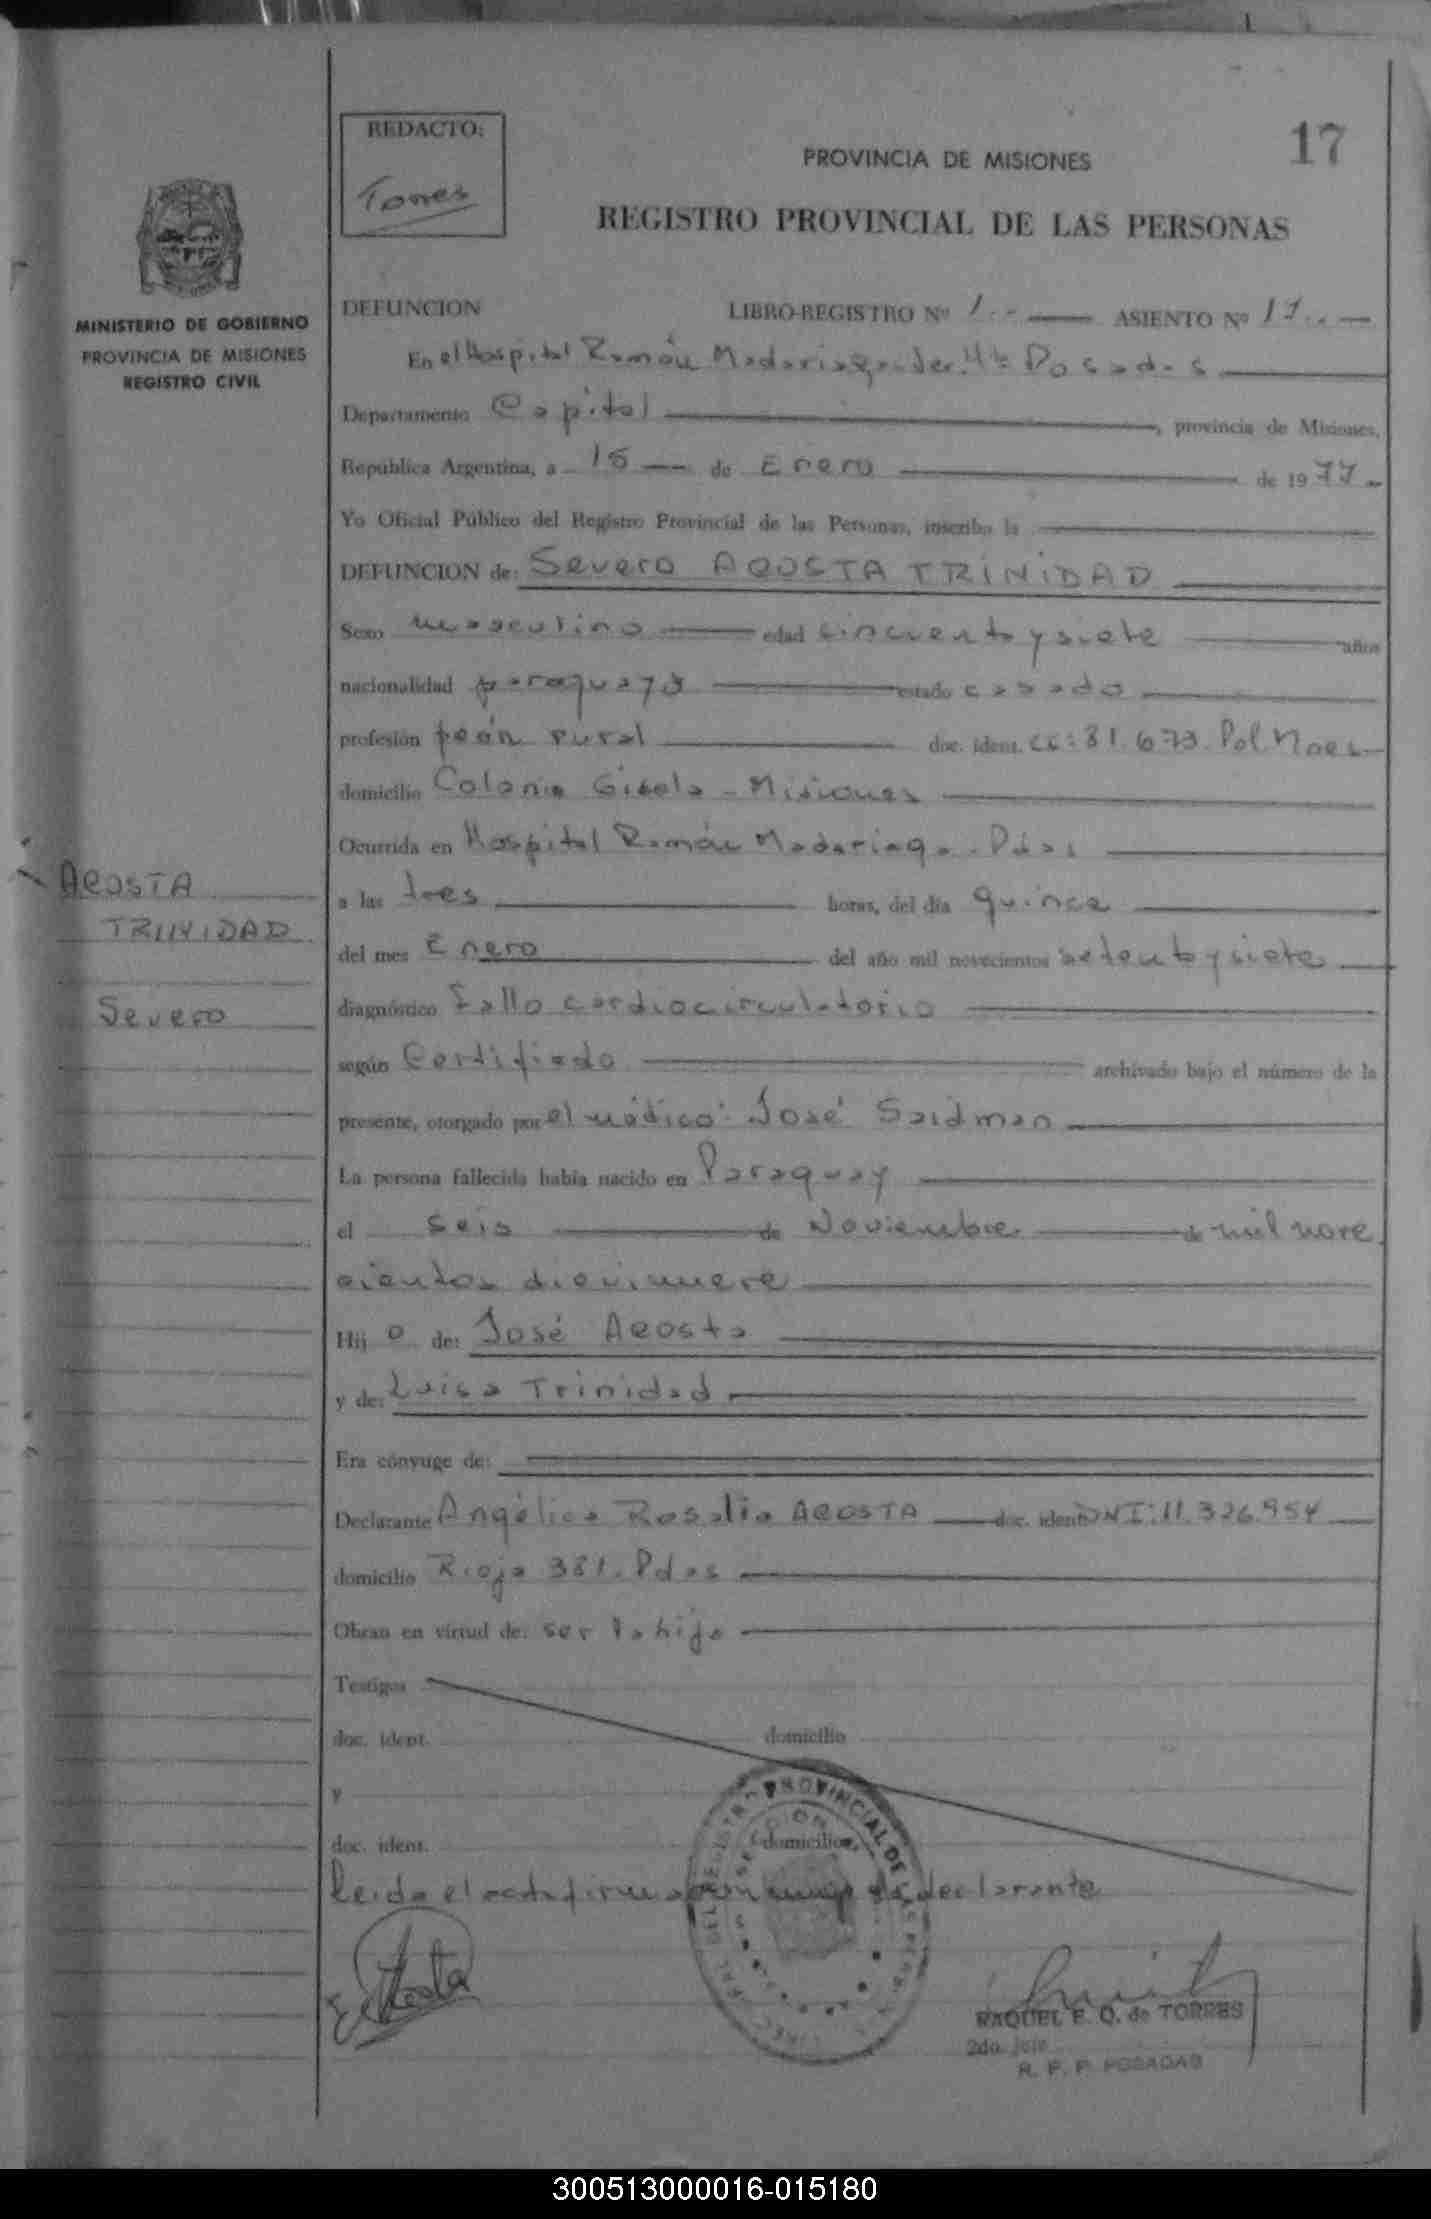 REDACTO:
Torres
17
PROVINCIA DE MISIONES
REGISTRO PROVINCIAL DE LAS PERSONAS
MINISTERIO DE GOBIERNO
PROVINCIA DE MISIONES
REGISTRO CIVIL
DEFUNCION LIBRO-REGISTRO Nº 1.- ASIENTO Nº 17..-
En el Hospital Ramón Madariaga Posadas
Departamento Capital, provincia de Misiones,
República Argentina, a 15 de Enero de 1977.-
Yo Oficial Público del Registro Provincial de las Personas, inscribo la
DEFUNCION de: Severo ACOSTA TRINIDAD
Sexo masculino edad cincuenta y siete años
nacionalidad paraguaya estado casado
profesión peón rural doc. ident. CI: 81.673. Pol Mnes
domicilio Colonia Gisela - Misiones
Ocurrida en Hospital Ramón Madariaga. Pdas
ACOSTA
TRINIDAD
Severo
a las tres horas, del día quince
del mes Enero del año mil novecientos setenta y siete
diagnóstico Fallo cardiocirculatorio
según Certificado archivado bajo el número de la
presente, otorgado por el médico: José Saidman
La persona fallecida había nacido en Paraguay
el seis de Noviembre de mil nove
cientos diecinueve
Hij o de: José Acosta
y de: Luisa Trinidad
Era cónyuge de:
Declarante Angélica Rosalia ACOSTA doc. ident. DNI: 11.326.954
domicilio Rioja 381. Pdas
Obran en virtud de: ser la hija
Testigos
doc. ident. domicilio
y
doc. ident. domicilio
Leida el acta firma la declarante
Acosta
RAQUEL E. Q. de TORRES
2do. Jefe
R. P. P. POSADAS
300513000016-015180